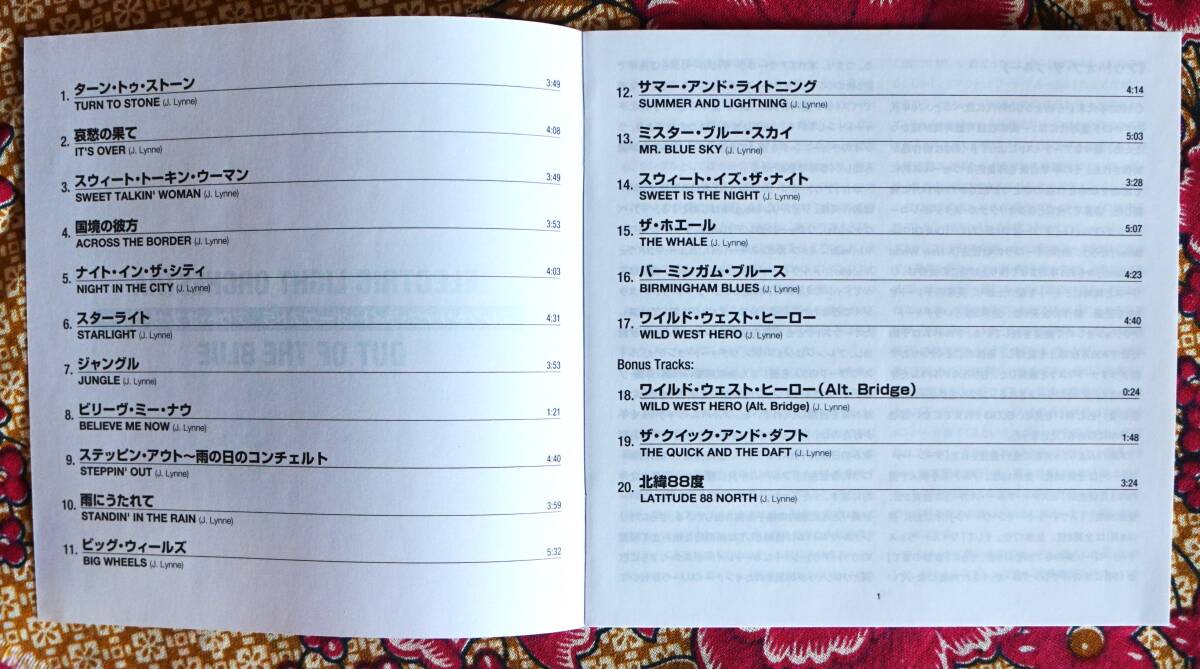 1. ターン・トゥ・ストーン 3:49
TURN TO STONE (J. Lynne)
2. 哀愁の果て 4:08
IT'S OVER (J. Lynne)
3. スウィート・トーキン・ウーマン 3:49
SWEET TALKIN' WOMAN (J. Lynne)
4. 国境の彼方 3:53
ACROSS THE BORDER (J. Lynne)
5. ナイト・イン・ザ・シティ 4:03
NIGHT IN THE CITY (J. Lynne)
6. スターライト 4:31
STARLIGHT (J. Lynne)
7. ジャングル 3:53
JUNGLE (J. Lynne)
8. ビリーヴ・ミー・ナウ 1:21
BELIEVE ME NOW (J. Lynne)
9. ステッピン・アウト〜雨の日のコンチェルト 4:40
STEPPIN' OUT (J. Lynne)
10. 雨にうたれて 3:59
STANDIN' IN THE RAIN (J. Lynne)
11. ビッグ・ウィールズ 5:32
BIG WHEELS (J. Lynne)
12. サマー・アンド・ライトニング 4:14
SUMMER AND LIGHTNING (J. Lynne)
13. ミスター・ブルー・スカイ 5:03
MR. BLUE SKY (J. Lynne)
14. スウィート・イズ・ザ・ナイト 3:28
SWEET IS THE NIGHT (J. Lynne)
15. ザ・ホエール 5:07
THE WHALE (J. Lynne)
16. バーミンガム・ブルース 4:23
BIRMINGHAM BLUES (J. Lynne)
17. ワイルド・ウェスト・ヒーロー 4:40
WILD WEST HERO (J. Lynne)
Bonus Tracks:
18. ワイルド・ウェスト・ヒーロー(Alt. Bridge) 0:24
WILD WEST HERO (Alt. Bridge) (J. Lynne)
19. ザ・クイック・アンド・ダフト 1:48
THE QUICK AND THE DAFT (J. Lynne)
20. 北緯88度 3:24
LATITUDE 88 NORTH (J. Lynne)
1